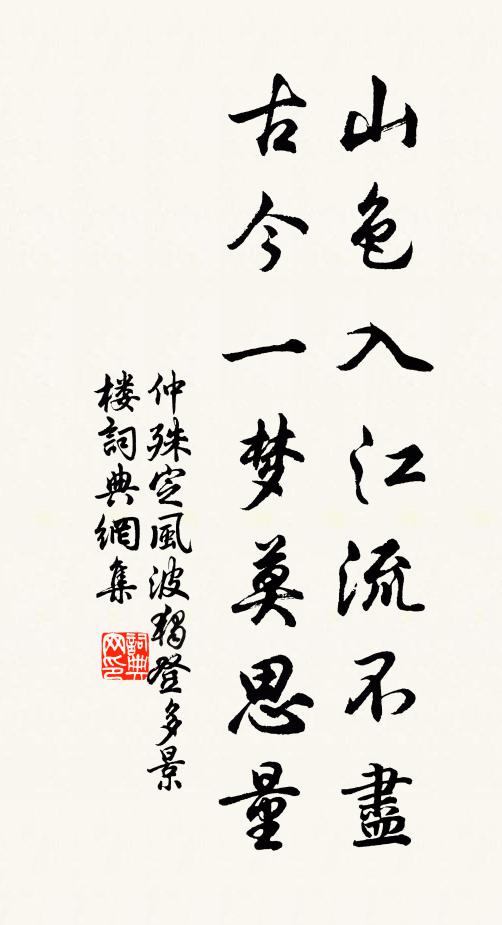 山色入江流不盡
古今一梦莫思量
仲殊定風波獨登多景
楼詞典網集
詞典
网印